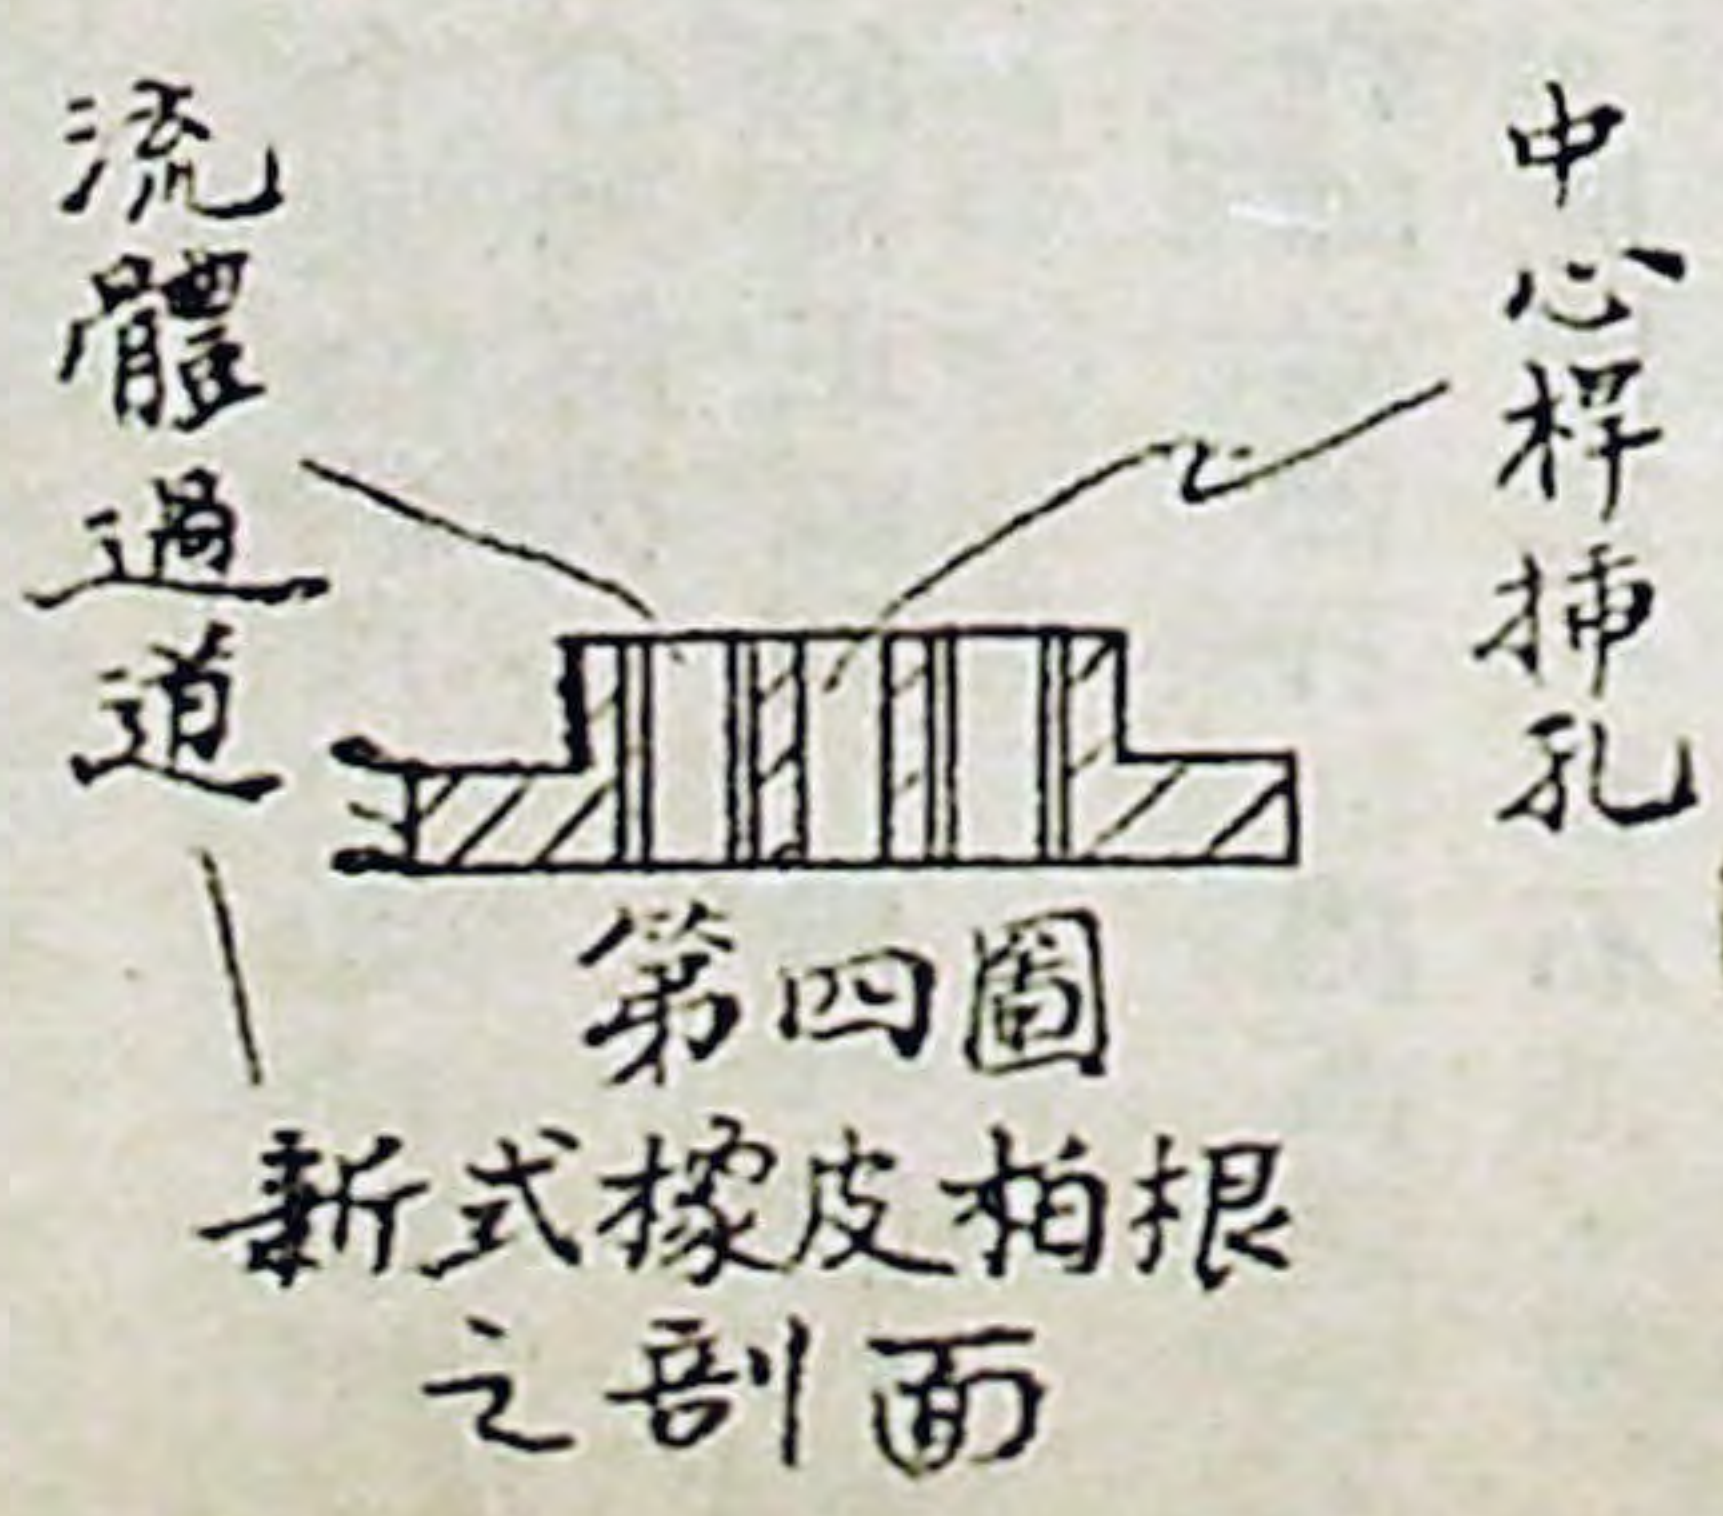 中心桿揷孔
流體過道
第四圖
新式橡皮柏根
之剖面